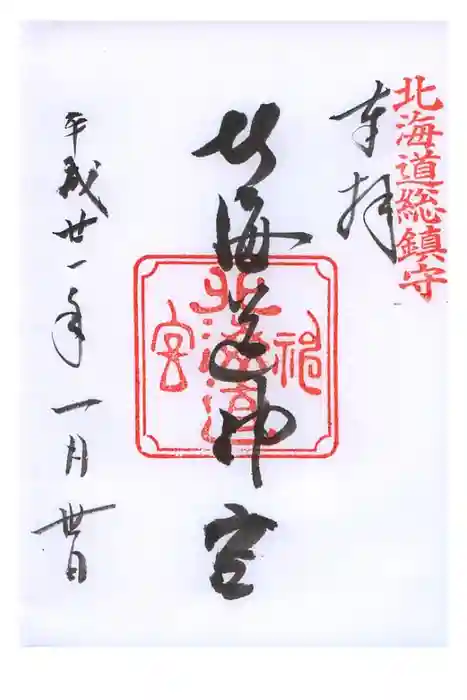 北海道総鎮守
奉拝
北海道神宮
北海道
神宮
平成廿一年一月丗日